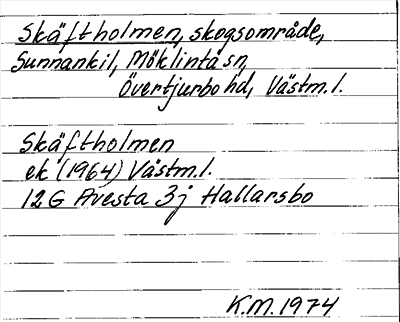 Skäftholmen, skogsområde,
Sunnankil, Möklinta sn,
Övertjurbo hd, Västm.l.
Skäftholmen
ek (1964) Västm.l.
12G Avesta 3j Hallarsbo
K.M. 1974